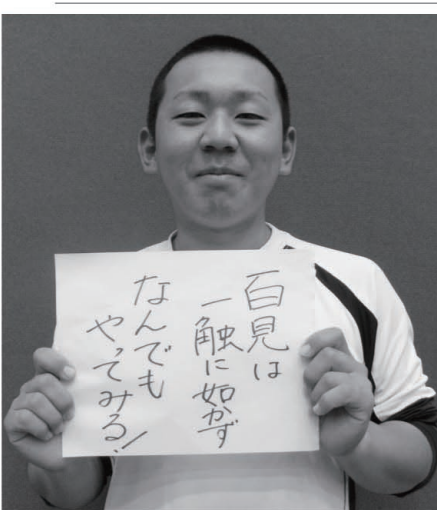 百見は
一触に如かず
なんでも
やってみる!